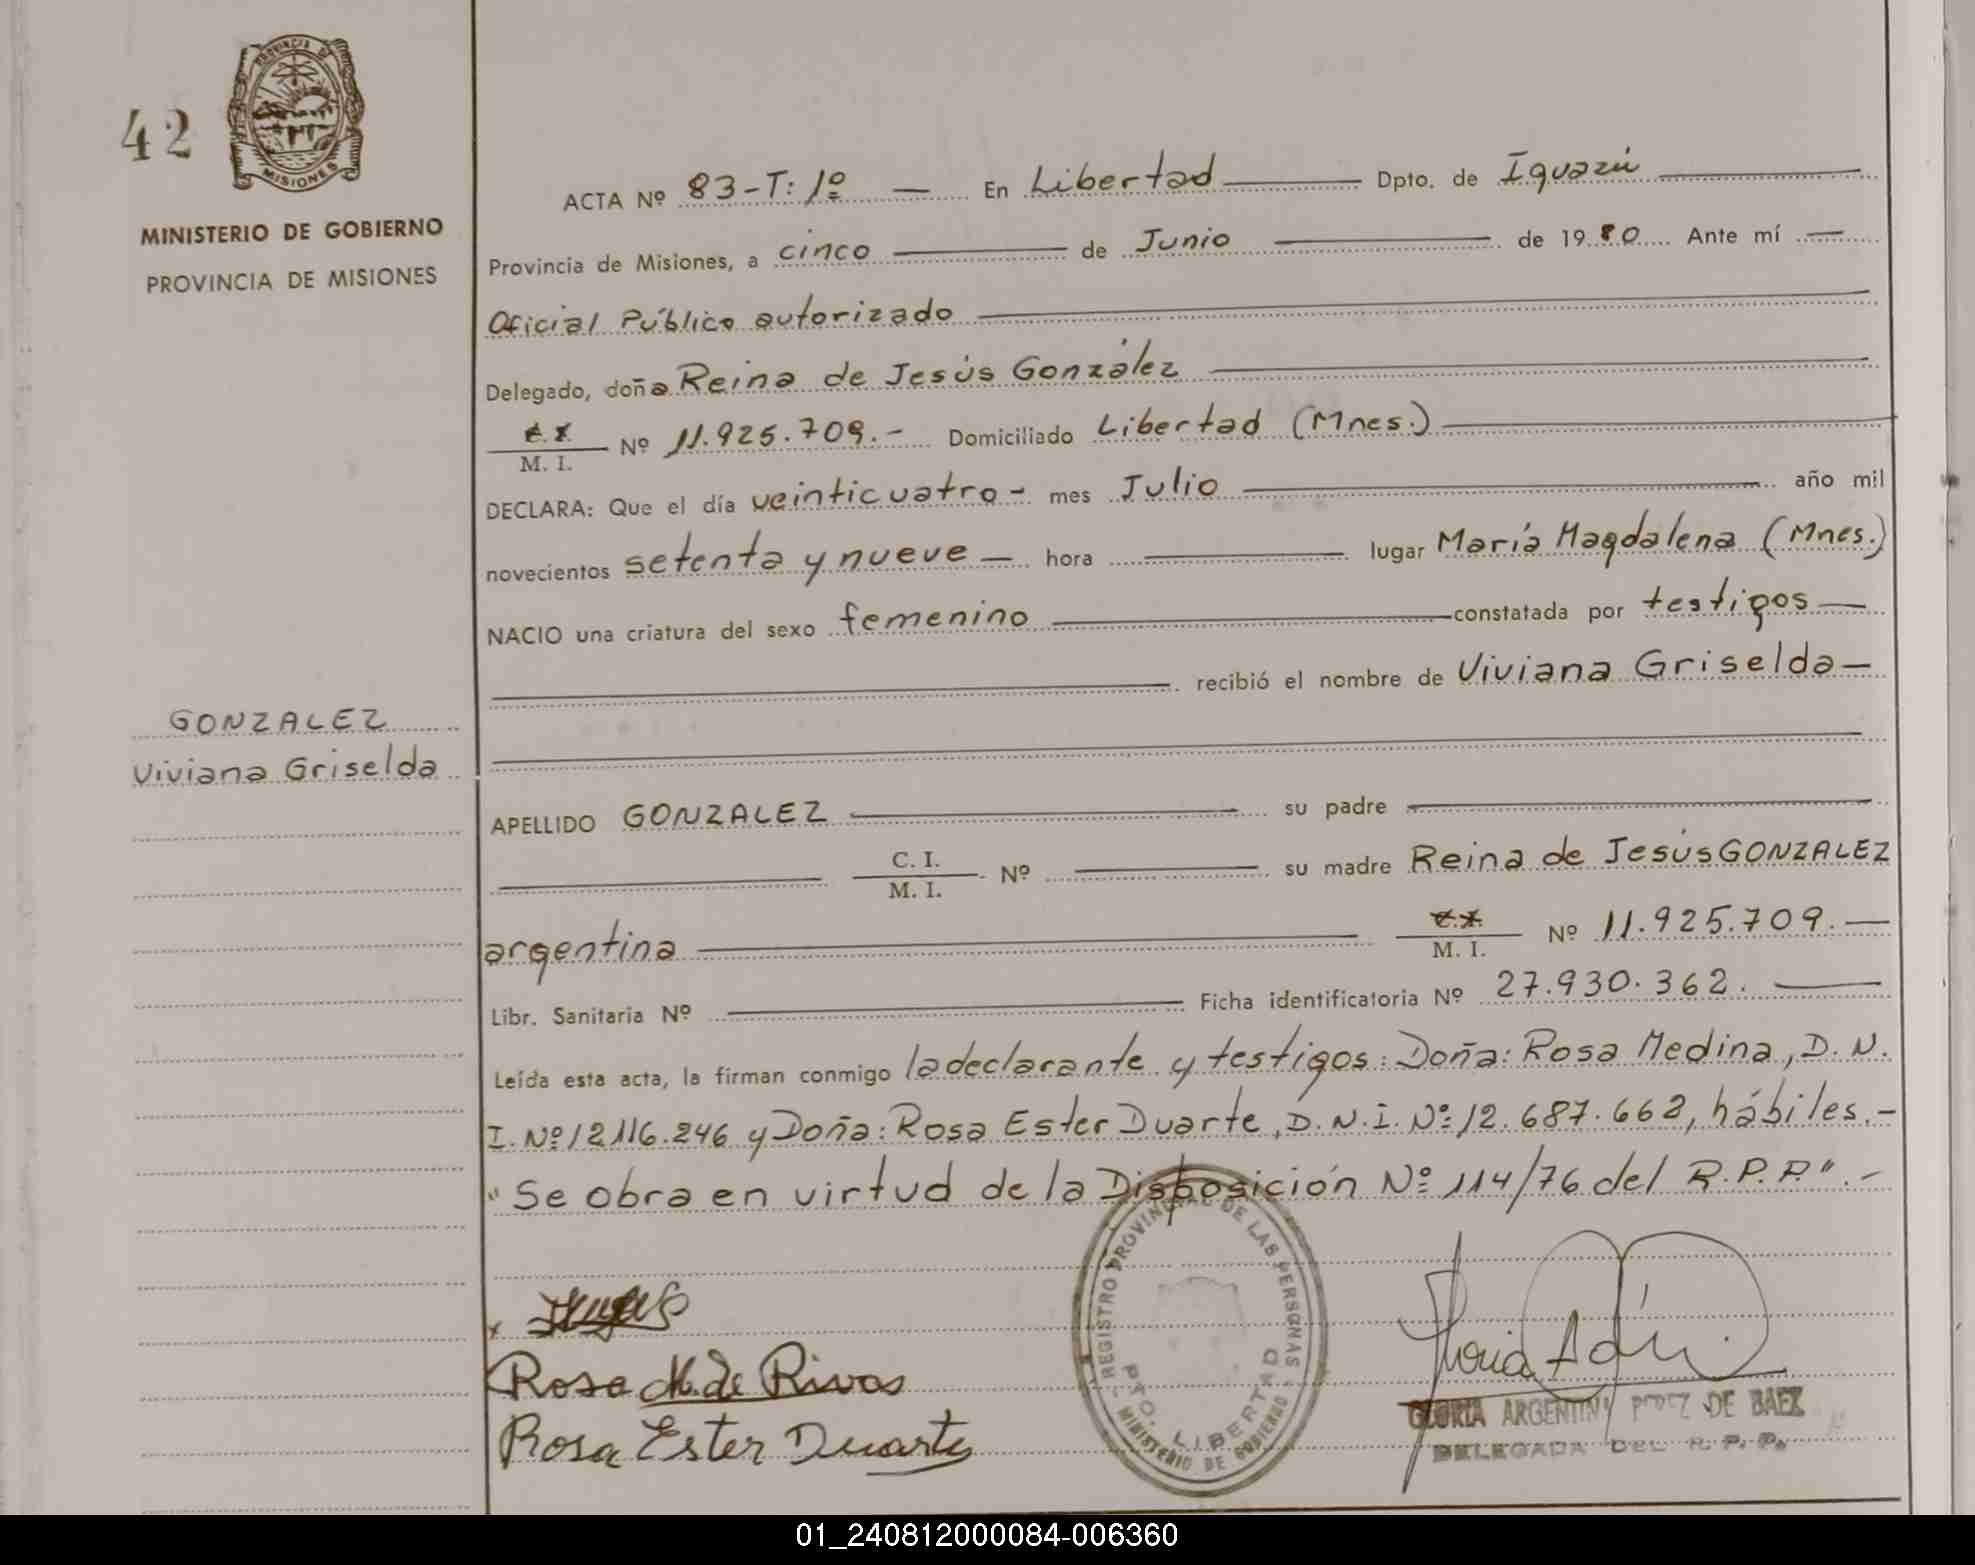 42
PROVINCIA DE
MISIONES
MINISTERIO DE GOBIERNO
PROVINCIA DE MISIONES
GONZALEZ
Viviana Griselda
ACTA Nº 83-T: 1º — En Libertad Dpto. de Iguazú
Provincia de Misiones, a cinco de Junio de 1980 Ante mí
Oficial Público autorizado
Delegado, doña Reina de Jesús González
C. I. / M. I. Nº 11.925.709.- Domiciliado Libertad (Mnes.)
DECLARA: Que el día veinticuatro- mes Julio año mil
novecientos setenta y nueve — hora — lugar María Magdalena (Mnes.)
NACIO una criatura del sexo femenino constatada por testigos —
recibió el nombre de Viviana Griselda —
APELLIDO GONZALEZ su padre
C. I. / M. I. Nº su madre Reina de Jesús GONZALEZ
argentina C. I. / M. I. Nº 11.925.709. —
Libr. Sanitaria Nº Ficha identificatoria Nº 27.930.362. —
Leída esta acta, la firman conmigo la declarante y testigos: Doña: Rosa Medina, D. N.
I. Nº 12116.246 y Doña: Rosa Ester Duarte, D. N. I. Nº 12.687.662, hábiles.-
"Se obra en virtud de la Disposición Nº 114/76 del R.P.P.".-
x
Rosa M. de Rivas
Rosa Ester Duarte
REGISTRO PROVINCIAL DE LAS PERSONAS
PTO. LIBERTAD
MINISTERIO DE GOBIERNO
GLORIA ARGENTINA PEREZ DE BAEZ
DELEGADA DEL R. P. P.
01_240812000084-006360